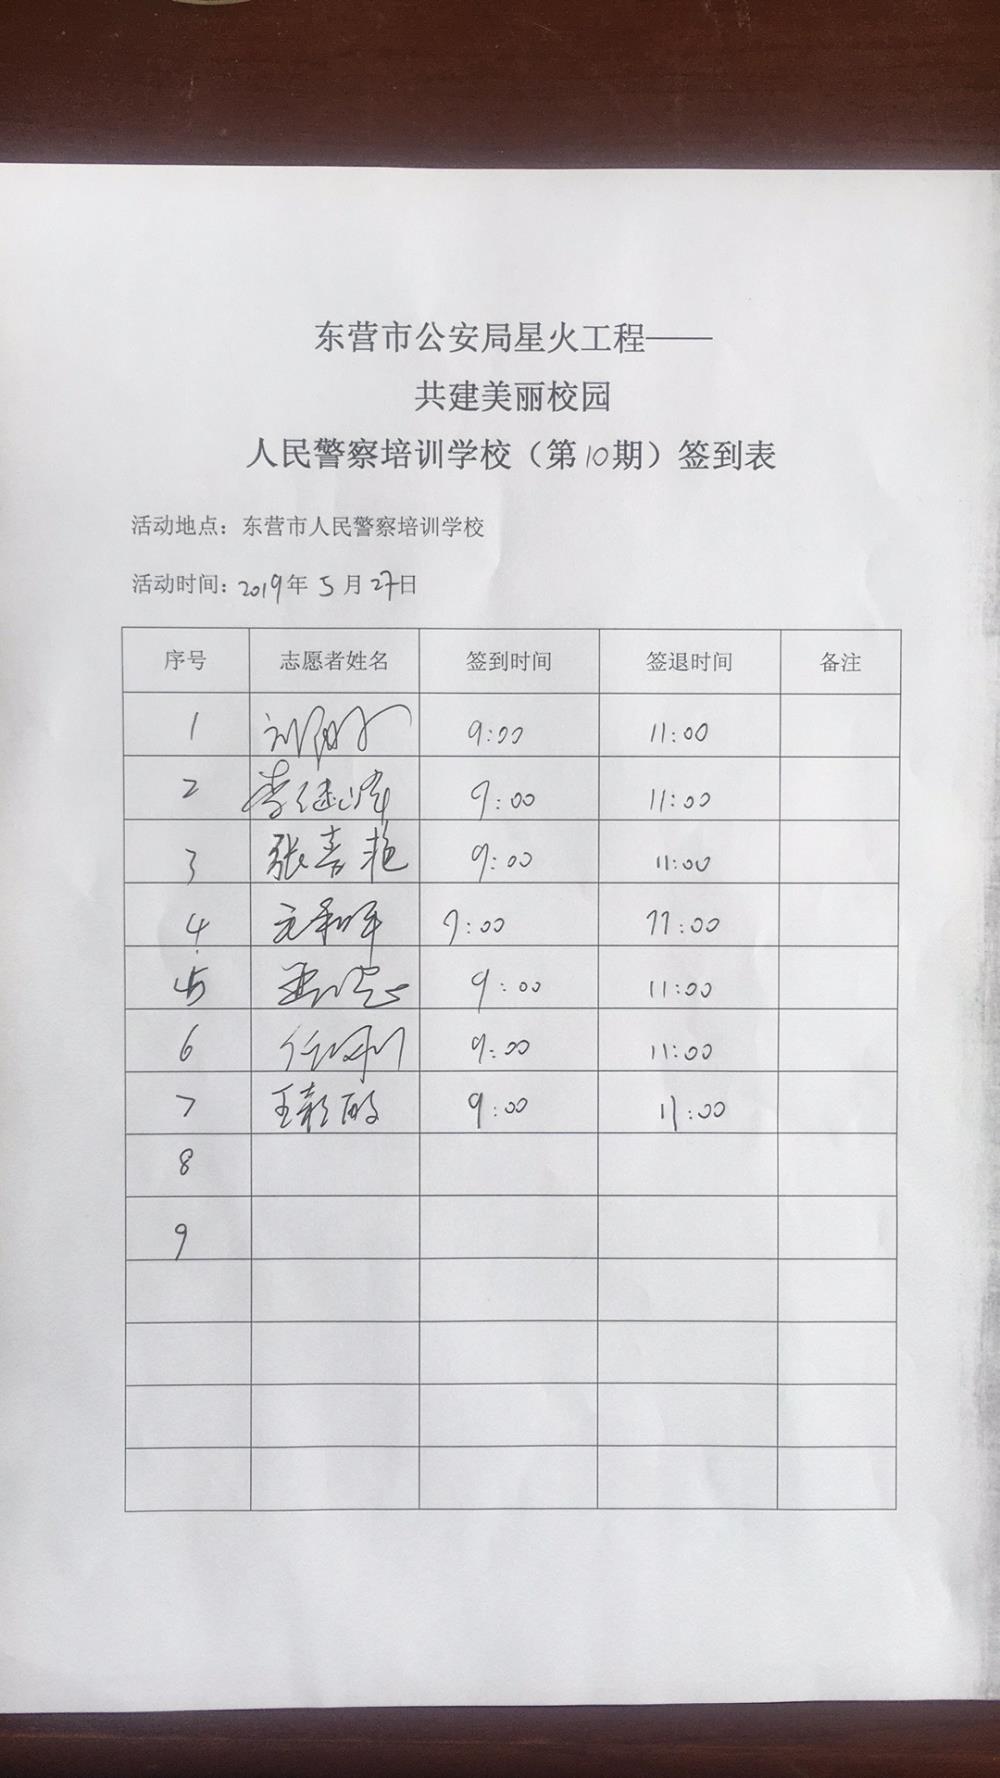 东营市公安局星火工程——
共建美丽校园
人民警察培训学校（第10期）签到表
活动地点：东营市人民警察培训学校
活动时间：2019年5月27日
序号 志愿者姓名 签到时间 签退时间 备注
1 9:00 11:00
2 李继峰 9:00 11:00
3 张喜艳 9:00 11:00
4 9:00 11:00
5 9:00 11:00
6 9:00 11:00
7 9:00 11:00
8
9